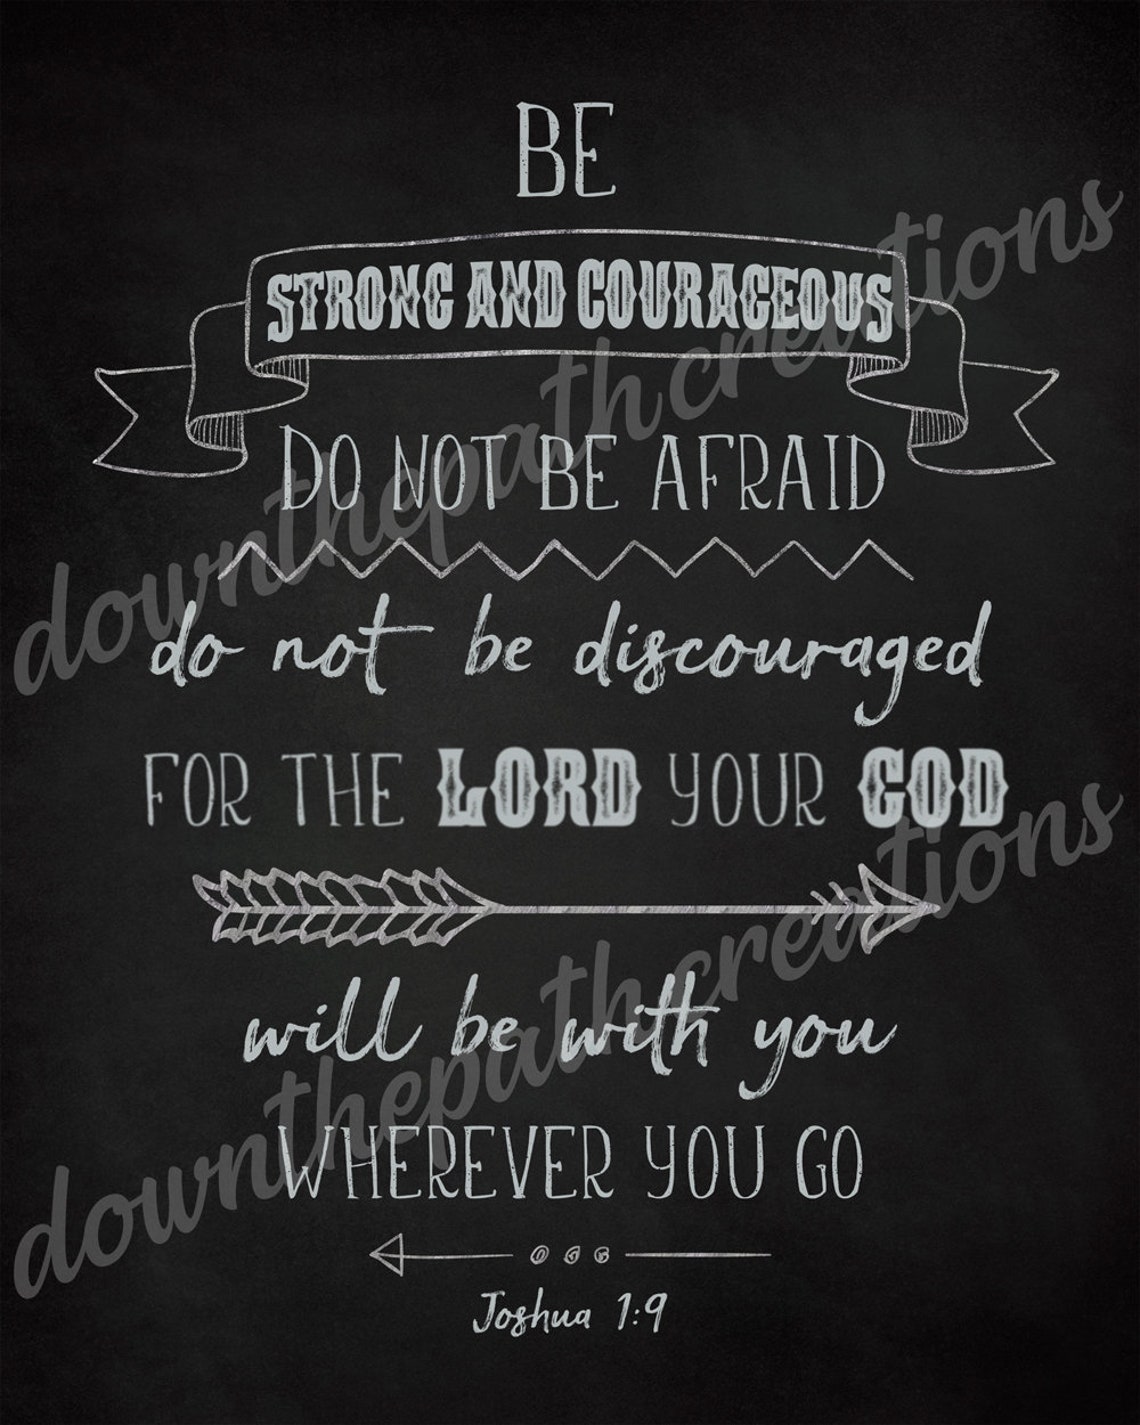 BE
STRONG AND COURAGEOUS
DO NOT BE AFRAID
do not be discouraged
FOR THE LORD YOUR GOD
will be with you
WHEREVER YOU GO
Joshua 1:9
downthepathcreations
downthepathcreations